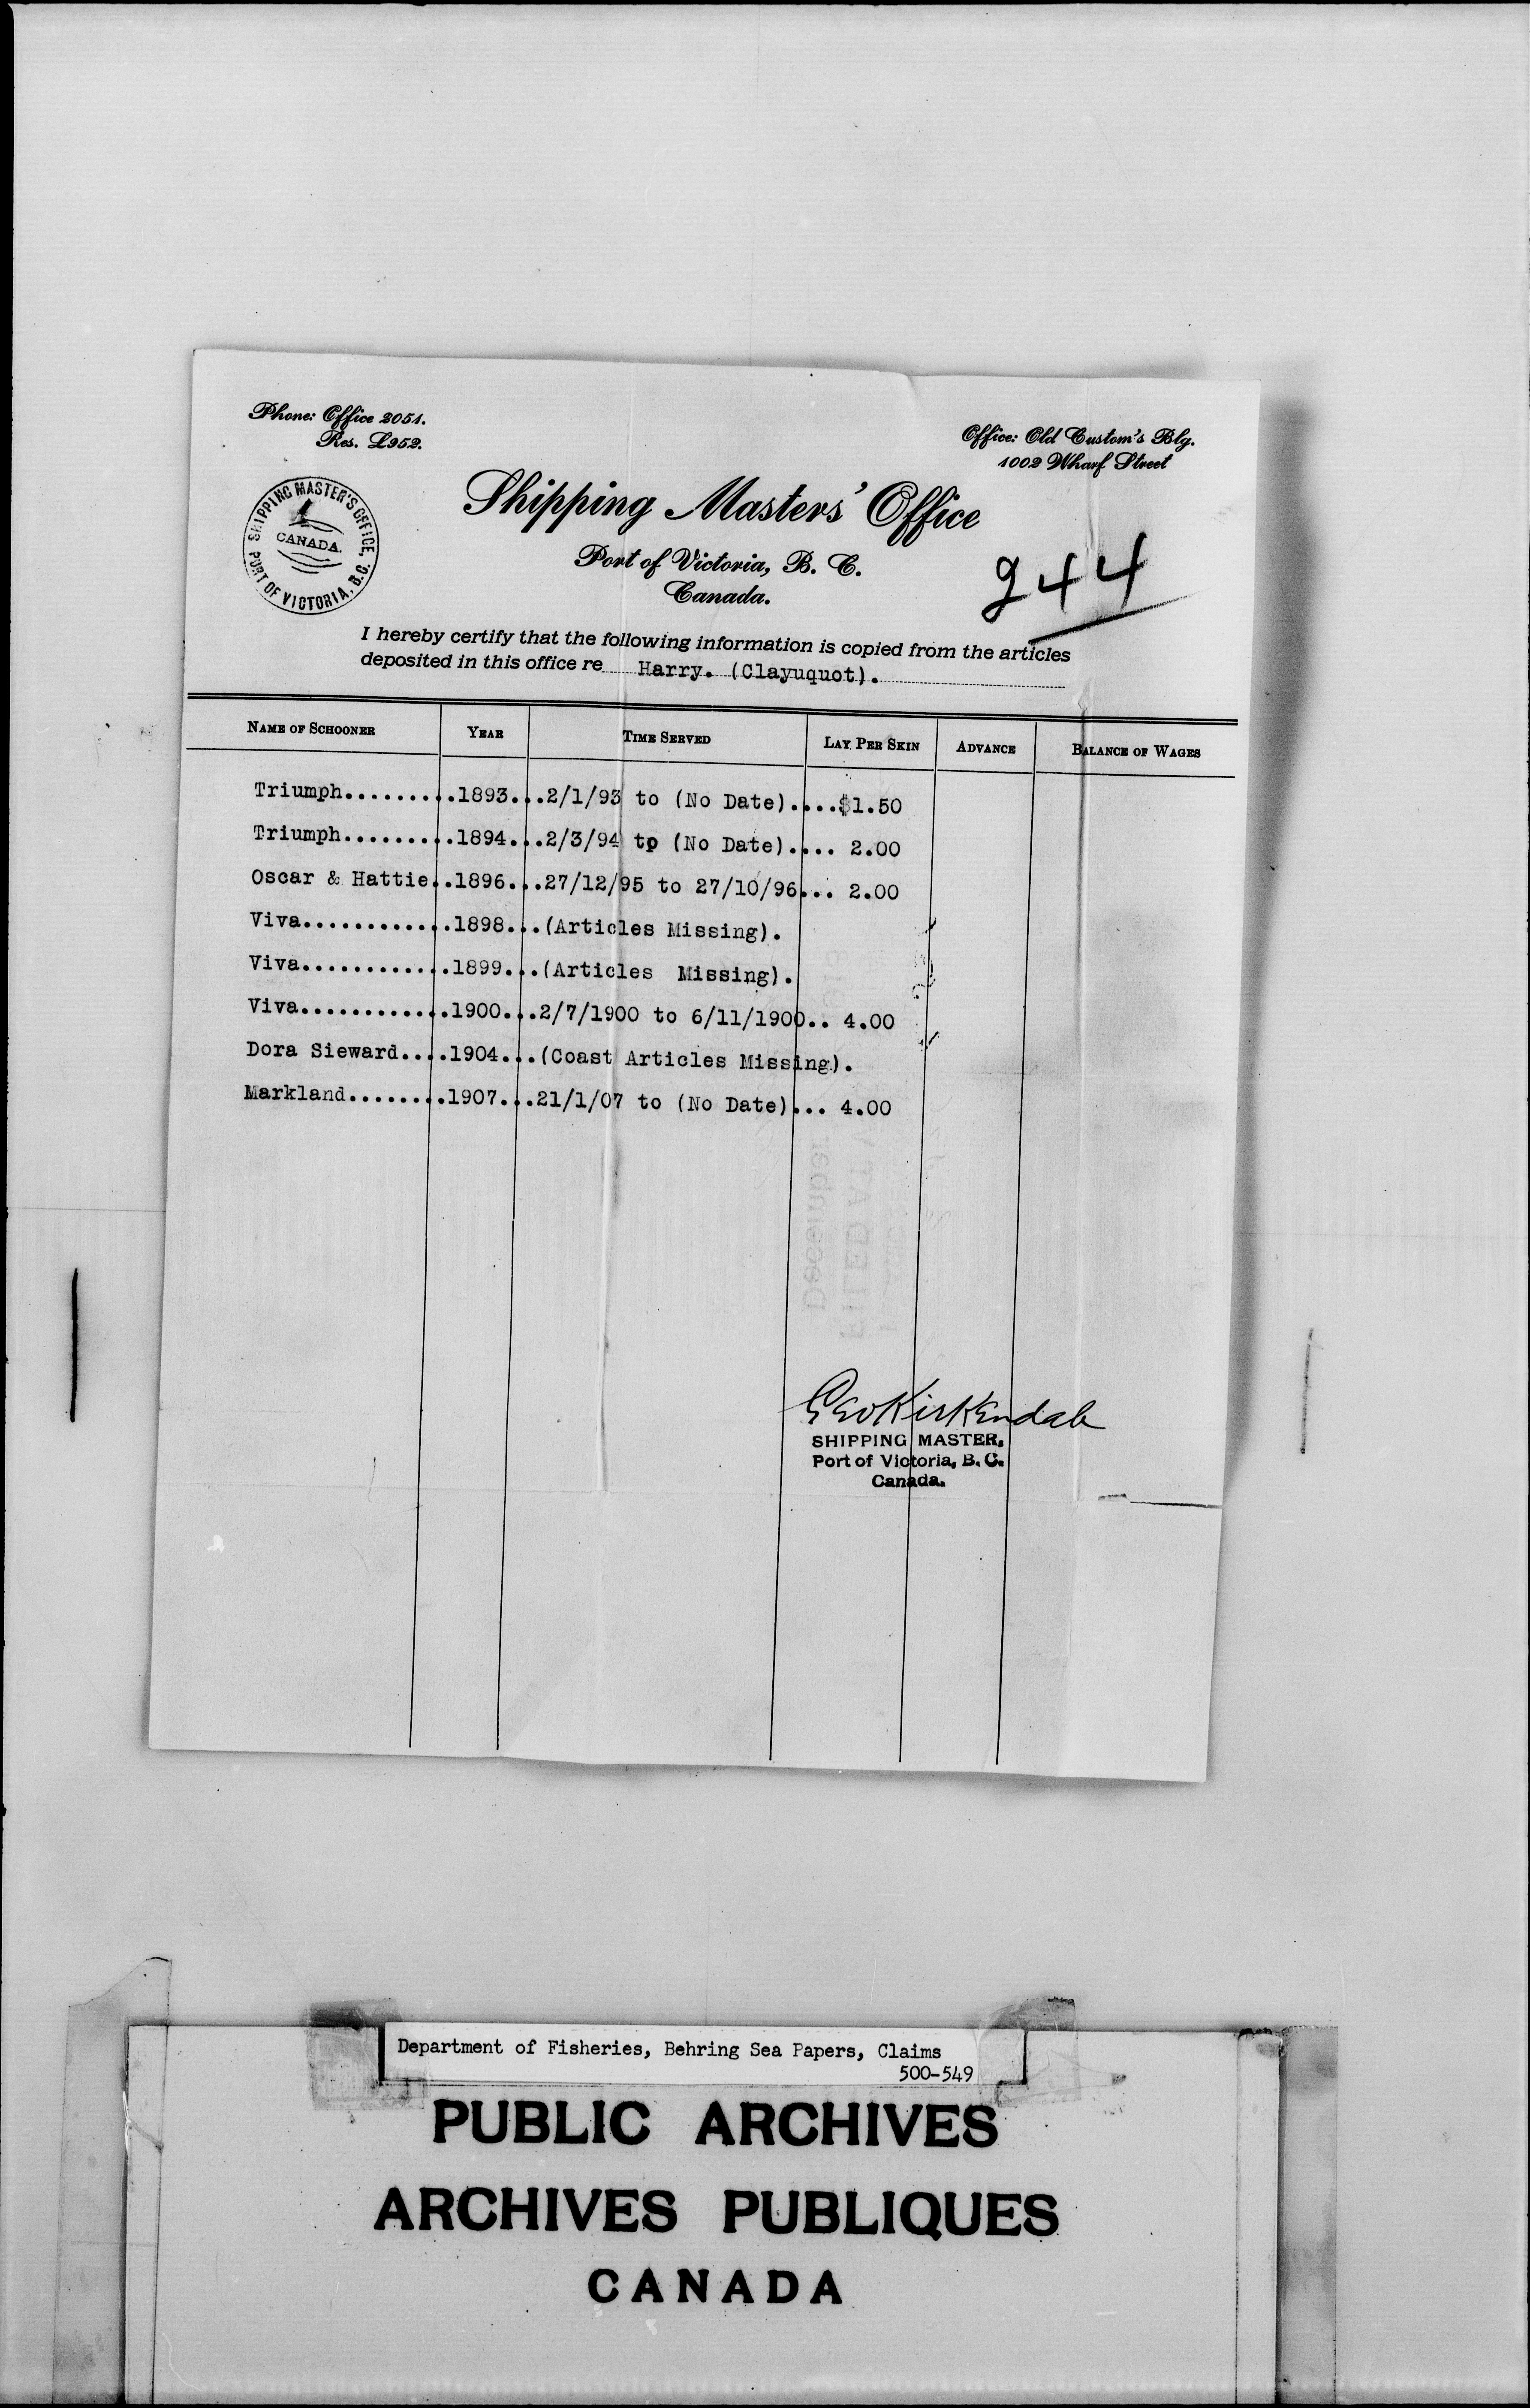 Phone: Office 2051.
Res. L952.
Office: Old Custom's Blg.
1002 Wharf Street
SHIPPING MASTER'S OFFICE,
CANADA.
PORT OF VICTORIA, B.C.
Shipping Masters' Office
Port of Victoria, B. C.
Canada.
944
I hereby certify that the following information is copied from the articles
deposited in this office re Harry. (Clayuquot).
NAME OF SCHOONER YEAR TIME SERVED LAY PER SKIN ADVANCE BALANCE OF WAGES
Triumph.........1893...2/1/93 to (No Date)....$1.50
Triumph.........1894...2/3/94 to (No Date).... 2.00
Oscar & Hattie..1896...27/12/95 to 27/10/96... 2.00
Viva............1898...(Articles Missing).
Viva............1899...(Articles Missing).
Viva............1900...2/7/1900 to 6/11/1900.. 4.00
Dora Sieward....1904...(Coast Articles Missing).
Markland........1907...21/1/07 to (No Date)... 4.00
December
FILED AT
Geo Kirkendale
SHIPPING MASTER.
Port of Victoria, B. C.
Canada.
Department of Fisheries, Behring Sea Papers, Claims
500-549
PUBLIC ARCHIVES
ARCHIVES PUBLIQUES
CANADA